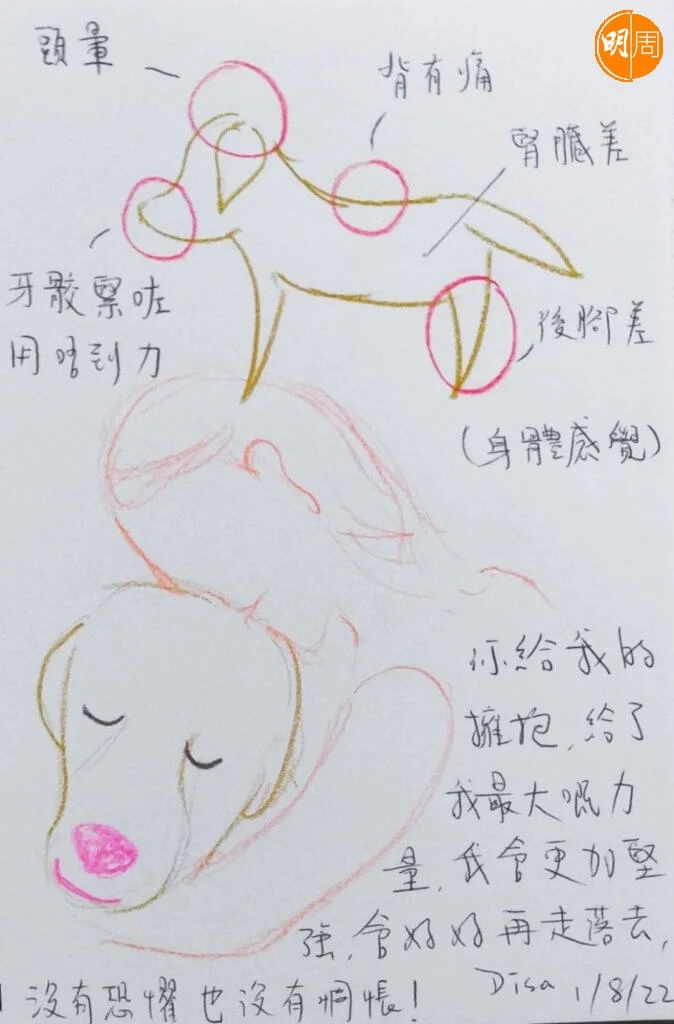 明周
頭暈
背有痛
腎臟差
牙骹緊咗
用唔到力
後腳差
(身體感覺)
你給我的
擁抱,給了
我最大嘅力
量,我會更加堅
強,會好好再走落去,
沒有恐懼也沒有惆悵!
Disa 1/8/22